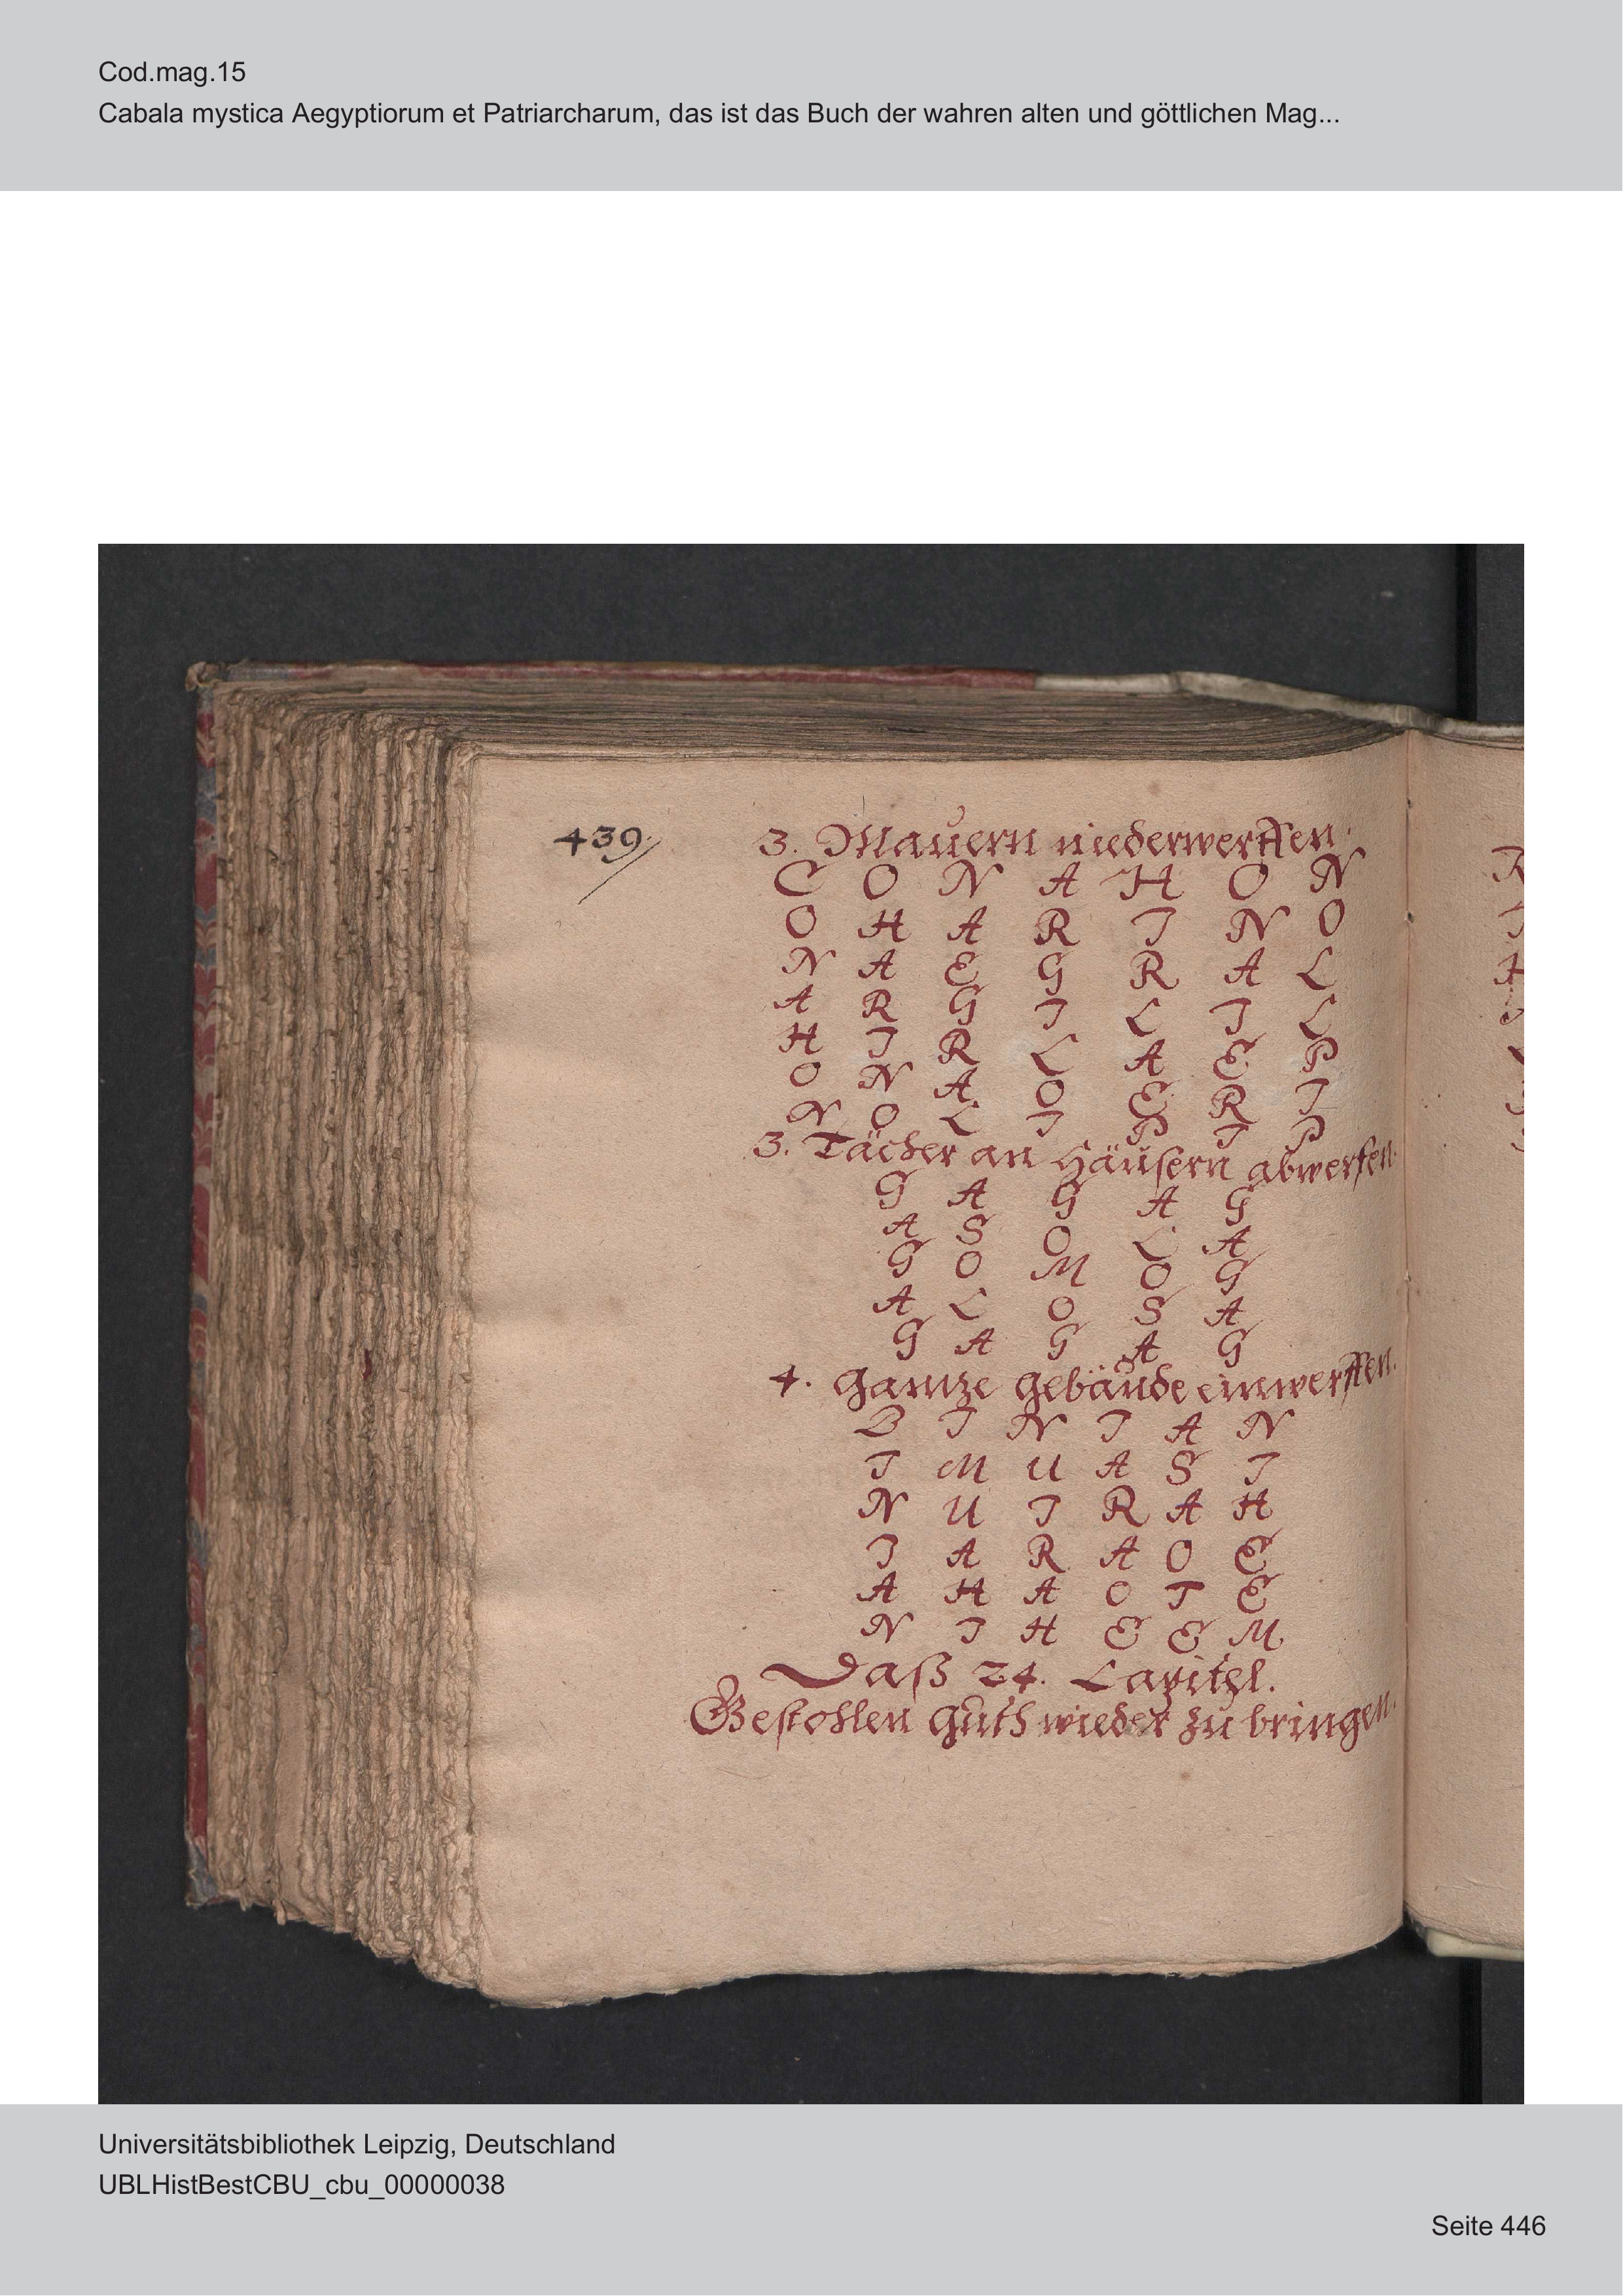 Cod.mag.15
Cabala mystica Aegyptiorum et Patriarcharum, das ist das Buch der wahren alten und göttlichen Mag...
439
3. Mauern niederwerffen.
C O N A H O N
O H A R I N O
N A E G R A L
A R G I L I L
H I R L A E P
O N A O E R I
N O L I P I P
3. Tächer an Häusern abwerfen.
G A G A G
A S O L A
G O M O G
A L O S A
G A G A G
4. gantze gebäude einwerffen.
B I N I A N
I M U A S I
N U I R A H
I A R A O E
A H A O T E
N I H E E M
Daß 24. Capitel.
Gestohlen guth wieder zu bringen.
Universitätsbibliothek Leipzig, Deutschland
UBLHistBestCBU_cbu_00000038
Seite 446